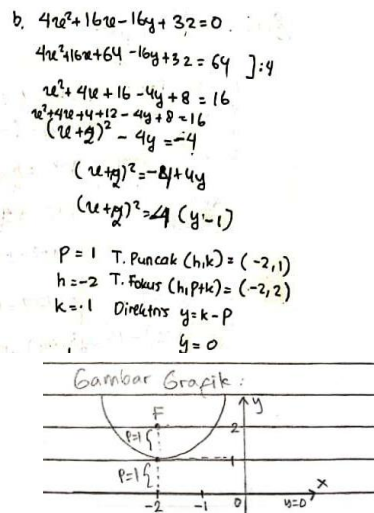 b. 4x²+16x-16y+32=0
4x²+16x+64-16y+32=64 ]:4
x²+4x+16-4y+8=16
x²+4x+4+12-4y+8=16
(x+2)²-4y=-4
(x+2)²=-4+4y
(x+2)²=4(y-1)
P=1 T. Puncak (h,k)=(-2,1)
h=-2 T. Fokus (h,p+k)=(-2,2)
k=1 Direktris y=k-p
y=0
Gambar Grafik:
y
F
2
P=1{
1
P=1{
x
-2 -1 0 y=0